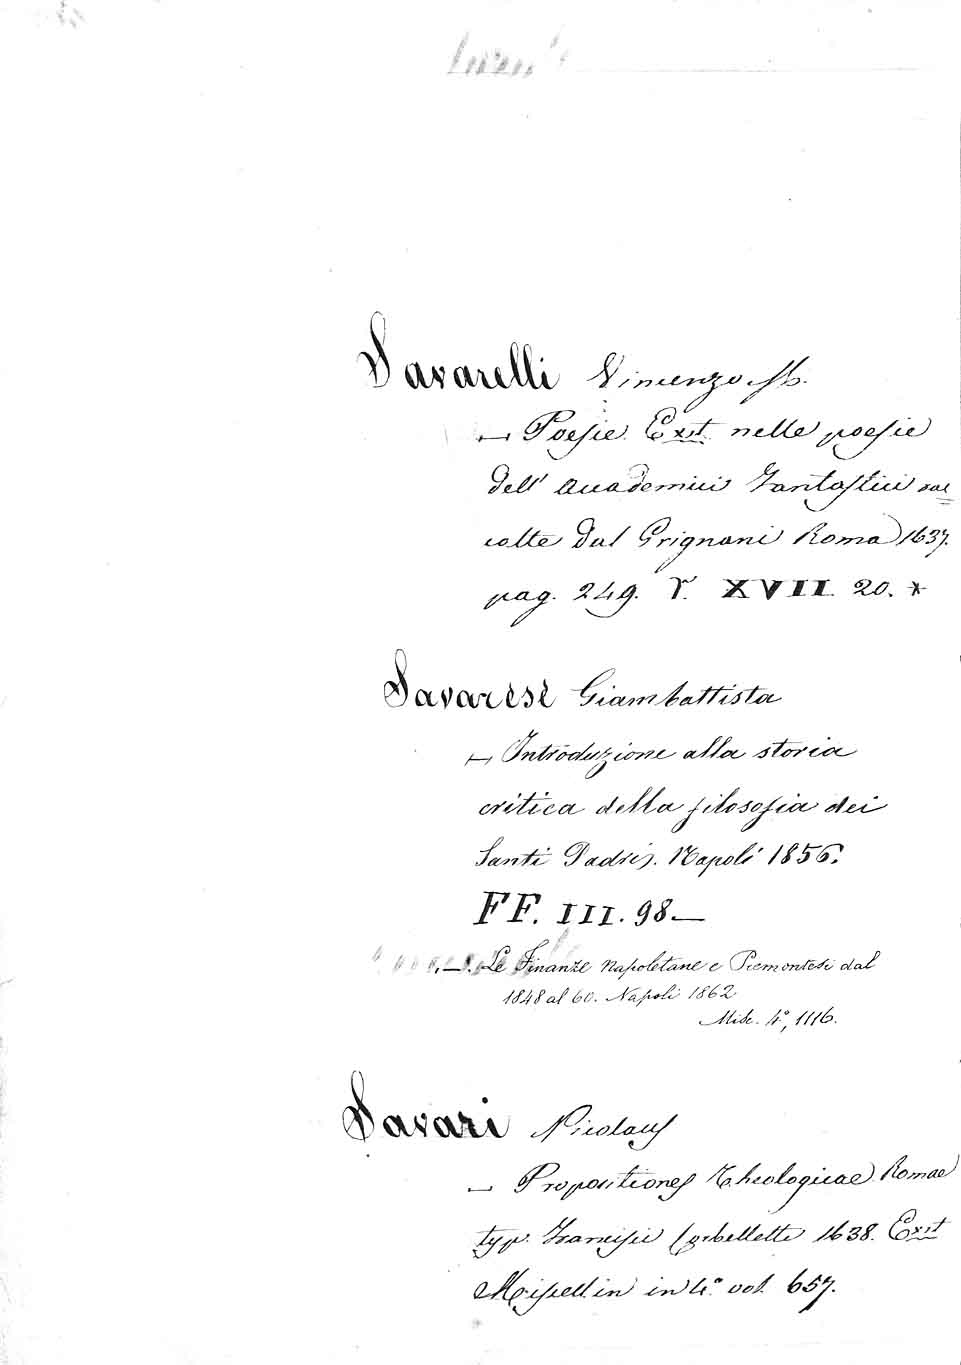 Savarelli Vincenzo Ab.
— Poesie. Exst. nelle poesie
dell' Accademici Fantastici rac
colte dal Grignani Roma 1637.
pag. 249. Y. XVII. 20. *
Savarese Giambattista
— Introduzione alla storia
critica della filosofia dei
Santi Padri. Napoli 1856.
FF. III. 98—
—. Le Finanze Napoletane e Piemontesi dal
1848 al 60. Napoli 1862
Misc. 4°, 1116.
Savari Nicolaus
— Propositiones Theologicae Romae
typ. Francisci Corbelletti 1638. Exst
Miscell. in in 4° vol. 657.